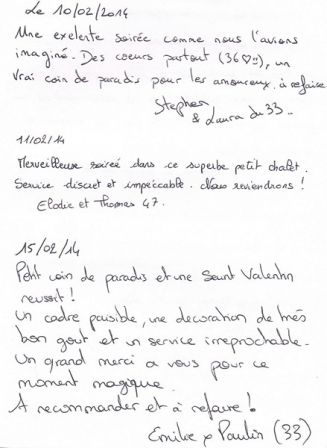 Le 10/02/2014
Une exelente soirée comme nous l'avions
imaginé. Des coeurs partout (36♡!!), un
vrai coin de paradis pour les amoureux, à refaire
Stephen
& Laura du 33..
11/02/14
Merveilleuse soireé dans ce superbe petit chalet.
Service discret et impéccable. Nous reviendrons !
Elodie et Thomas 47.
15/02/14
Petit coin de paradis et une Saint Valentin
reussit !
Un cadre paisible, une decoration de trés
bon gout et un service irreprochable.
Un grand merci a vous pour ce
moment magique.
A recommander et à refaire !
Emilie x Paulin (33)